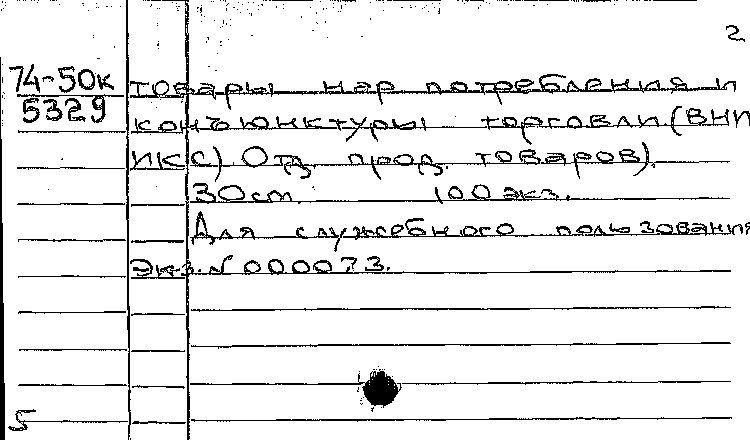 2
74-50к товары нар потребления и
5329 конъюнктуры торговли (ВНИ
ИКС) Отд. прод. товаров).
30 ст. 100 экз.
Для служебного пользования
Экз. № 000073.
5